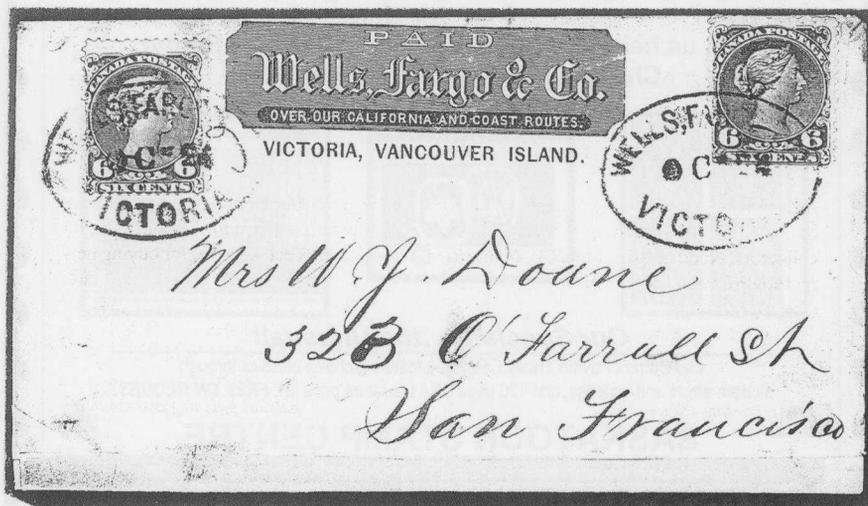 PAID
Wells, Fargo & Co.
OVER OUR CALIFORNIA AND COAST ROUTES.
VICTORIA, VANCOUVER ISLAND.
CANADA POSTAGE
6 6
SIX CENTS
WELLS FARGO
OC 24
VICTORIA
CANADA POSTAGE
6 6
CENTS
WELLS, F
OC
VICTO
Mrs W. J. Doane
323 O'Farrall St
San Francisco